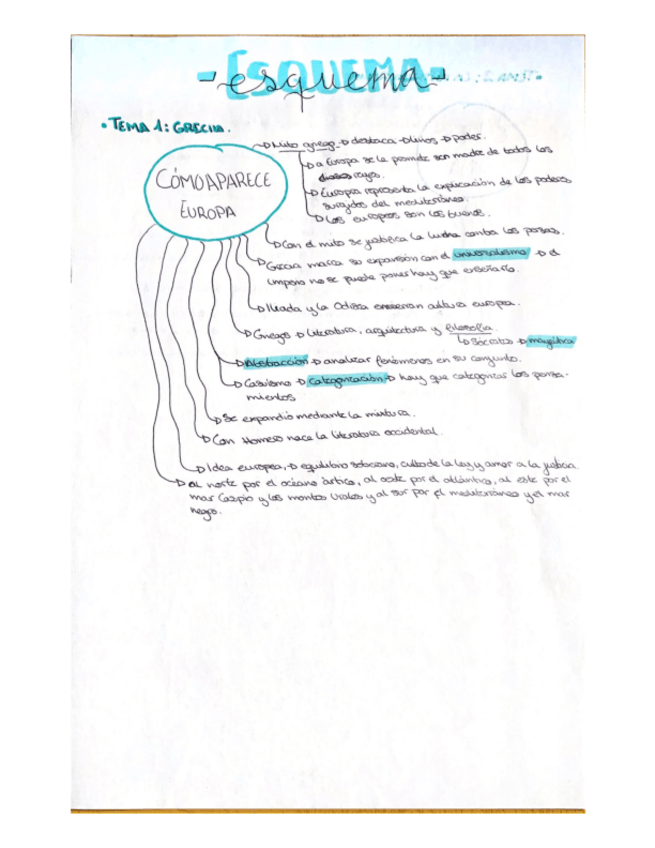 -ESQUEMA-
-esquema-
• TEMA 1: GRECIA.
CÓMO APARECE
EUROPA
→ Mito griego → destaca → →poder.
→ a Europa se le promete ser madre de todos los
→ Europa representa la explicación de los poderes
surgidos del mediterráneo.
→ Los europeos son los buenos.
→ Con el mito se justifica la lucha contra los persas.
→ Grecia marca su expansión con el universalismo → el
imperio no se puede poner hay que enseñarlo.
→ Iliada y la Odisea encierran cultura europea.
→ Griegos → literatura, arquitectura y filosofía.
→ Sócrates → mayéutica
→ Abstracción → analizar fenómenos en su conjunto.
→ → categorización → hay que categorizar los pensa-
mientos
→ Se expandió mediante la mixtura.
→ Con Homero nace la literatura occidental.
→ Idea europea, → equilibrio soberano, culto de la ley y amor a la justicia
→ al norte por el océano ártico, al oeste por el atlántico, al este por el
mar Caspio y los montes Urales y al sur por el mediterráneo y el mar
negro.